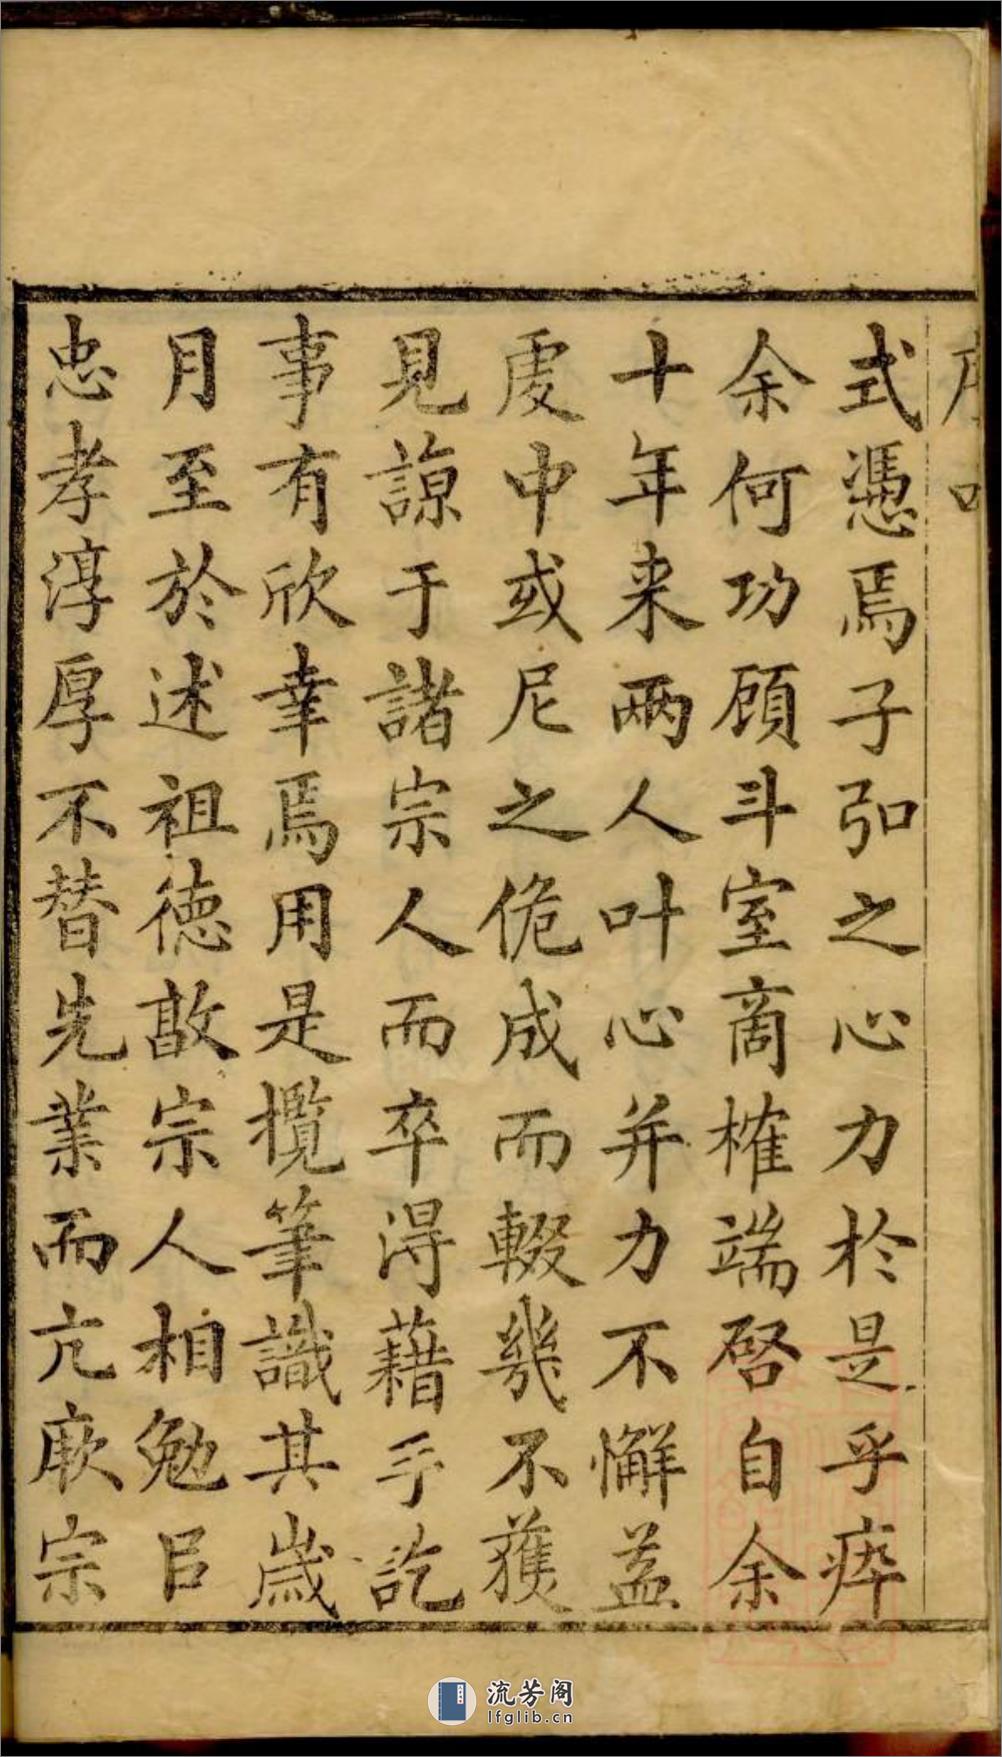 序
式憑焉子弘之心力於是乎瘁
余何功顧斗室商榷端啓自余
十年来兩人叶心并力不懈益
虔中或尼之佹成而輟幾不獲
見諒于諸宗人而卒得藉手訖
事有欣幸焉用是攬筆識其歲
月至於述祖德敢宗人相勉㠯
忠孝淳厚不替先業而亢厥宗
流芳阁
lfglib.cn